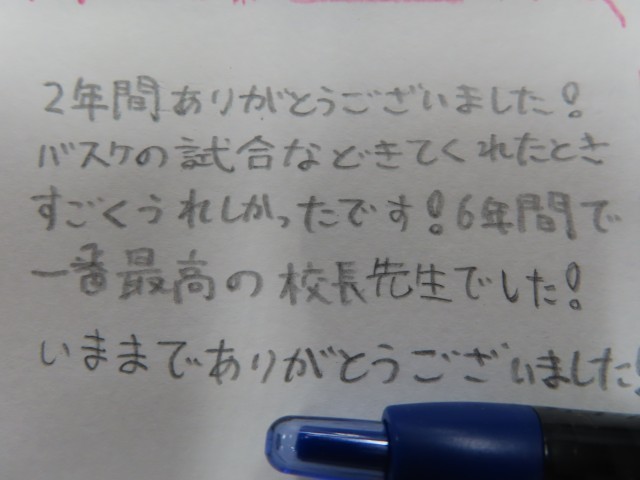 2年間ありがとうございました!
バスケの試合などきてくれたとき
すごくうれしかったです!6年間で
一番最高の校長先生でした!
いままでありがとうございました!